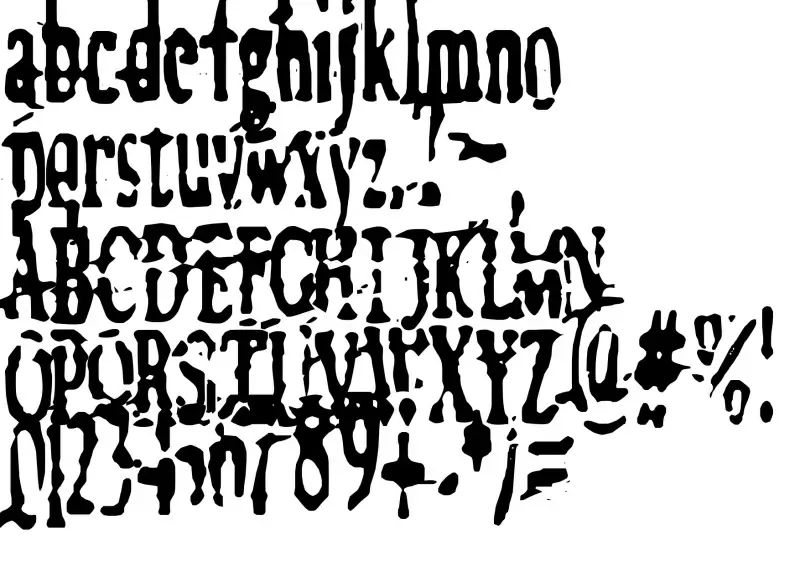 abcdefghijklmno
pqrstuvwxyz.,
ABCDEFGHIJKLMN
OPQRSTUVWXYZ @#%!
0123456789+-=